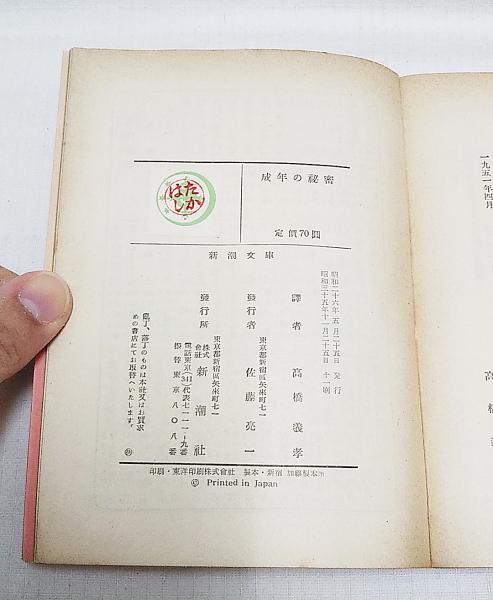 一九五一年四月
高橋義
成年の秘密
定價70圓
たか
はし
新潮文庫
昭和二十六年五月二十五日 発行
昭和三十五年十一月二十五日 十一刷
譯者 高橋義孝
發行者 佐藤亮一
東京都新宿區矢來町七一
發行所 株式會社 新潮社
東京都新宿區矢來町七一
電話東京(341)代表七一一一―九番
振替東京八〇八番
亂丁、落丁のものは本社又はお買求
めの書店にてお取替へいたします。
印刷・東洋印刷株式會社 製本・新宿 加藤製本所
© Printed in Japan